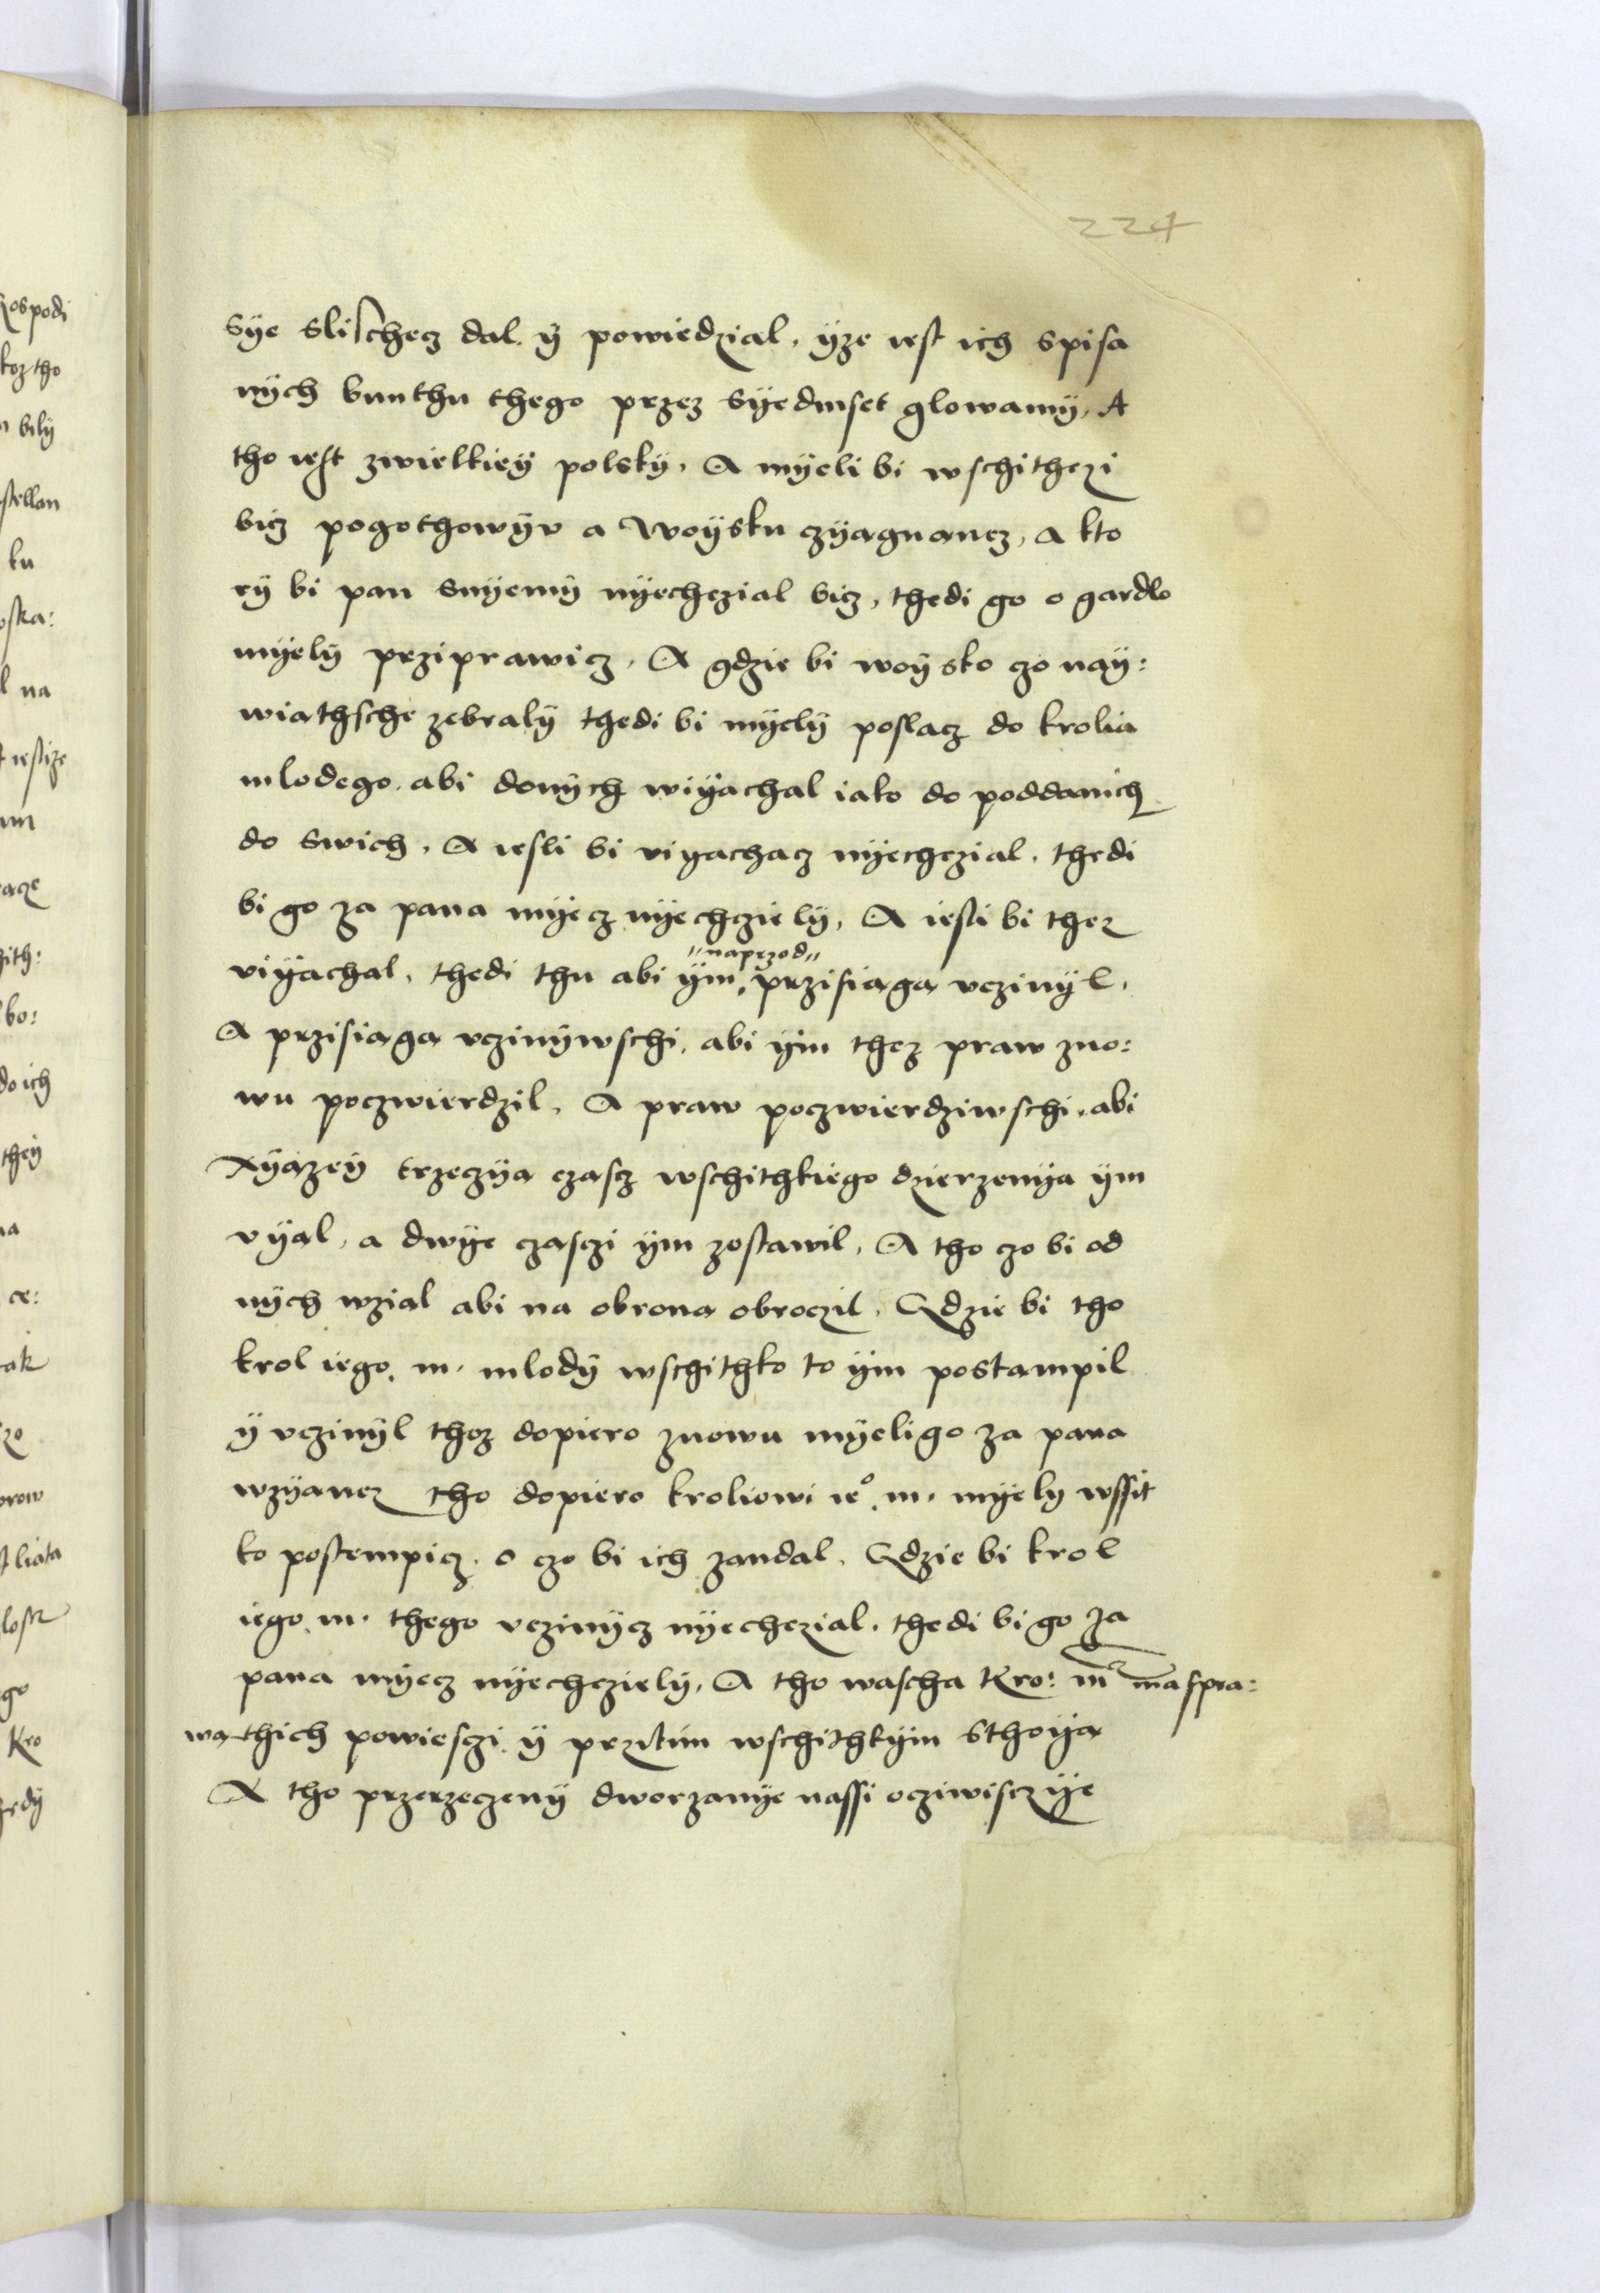 224
Sÿe slischecz dal. ÿ powiedzial, ÿze iest ich spisa
nÿch bunthu thego przez Sÿedmset glowamÿ, A
tho iest zwielkieÿ polskÿ, A mÿeli bi wschithczi
bicz pogothowÿv a woÿsku czÿagnancz, A kto
rÿ bi pan snÿemÿ nÿechczial bicz, thedi go o gardlo
mÿelÿ prziprawicz, A gdzie bi woÿsko czo naÿ:
wiathsche zebralÿ thedi bi mÿelÿ poslacz do krolia
mlodego, abi donÿch wiÿachal iako do poddanich
do swich, A iesli bi viÿachacz nÿechczial, thedi
bi go za pana mÿecz nÿechczielÿ, A iesli bi thez
viÿachal, thedi thu abi ÿm "naprzod" przisiaga vczinÿl,
A przisiaga vczinÿwschi, abi ÿm thez praw zno:
wu poczwierdzil, A praw poczwierdziwschi, abi
Xÿązeÿ trzeczÿa czascz wschithkiego dzierzenÿa ÿm
vÿal, a dwÿe czasczi ÿm zostawil, A tho czo bi od
nÿch wzial abi na obrona obroczil, Gdzie bi tho
krol iego. m. mlodÿ wschithko to ÿm postampil
ÿ vczinÿl thoz dopiero znowu mÿeligo za pana
wzÿancz tho dopiero kroliowi ie° m. mÿelÿ wssit
ko postempicz, o czo bi ich zandal, Gdzie bi krol
iego. m. thego vczinÿcz nÿechczial, thedi bi go za
pana mÿecz nÿechczielÿ, A tho wascha Kro: m ma spra:
wa thich powiesczi ÿ przitim wschithkÿm sthoÿa
A tho przerzeczenÿ dworzanÿe nassi ocziwisczÿe